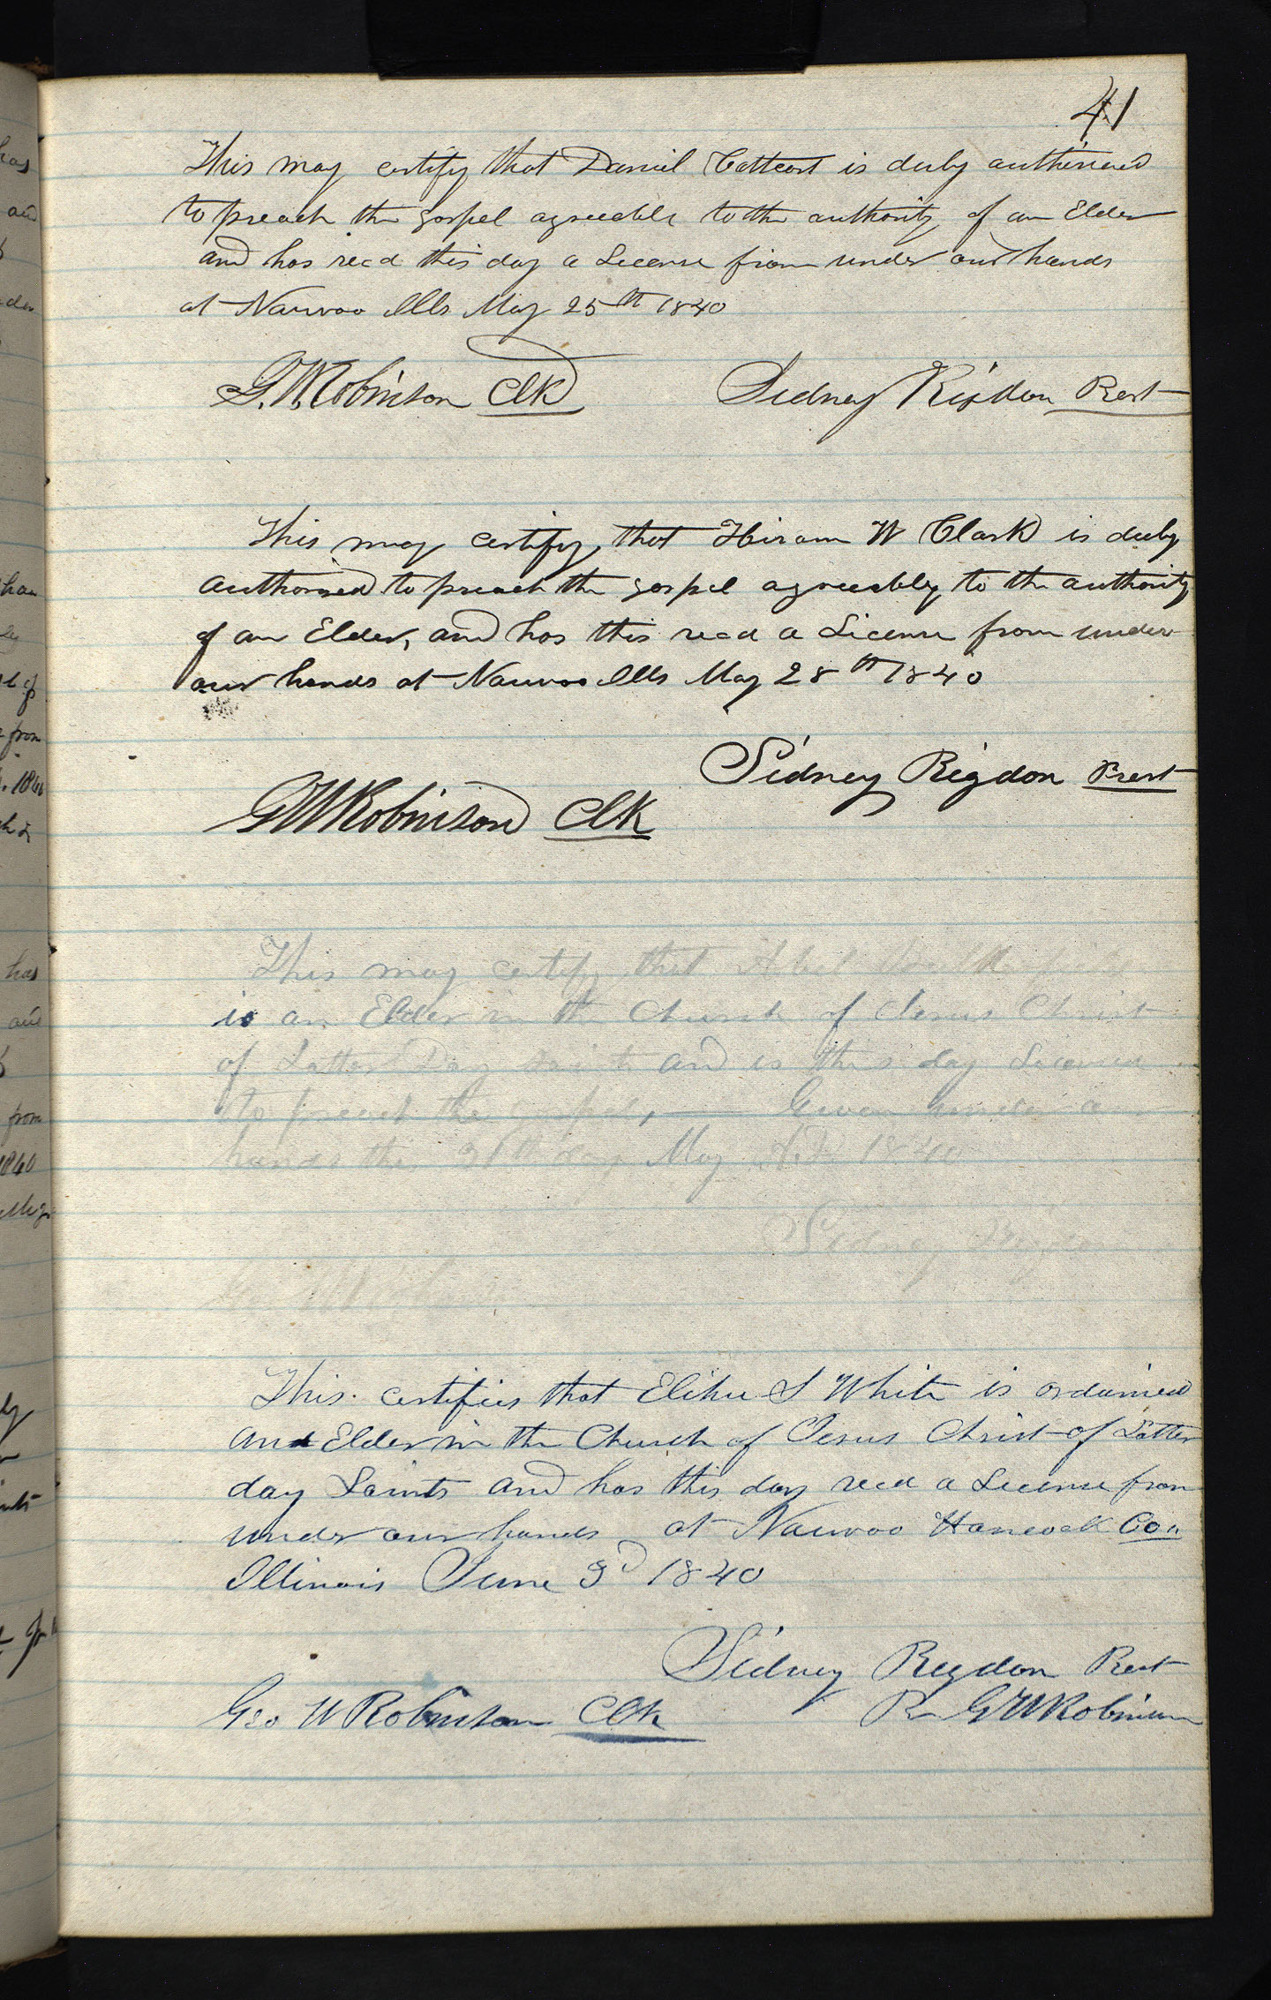 41
This may certify that Daniel Cathcart is duly authorised
to preach the gospel agreeable to the authority of an Elder
and has recd this day a License from under our hands
at Nauvoo Ills May 25th 1840
G. W. Robinson Clk Sidney Rigdon Prest
This may certify, that Hiram W Clark is duly
authorised to preach the gospel agreeably to the authority
of an Elder, and has this recd a License from under
our hands at Nauvoo Ills May 28th 1840
Sidney Rigdon Prest
G W Robinson Clk
This may certify that
is an Elder in the Church of Jesus Christ
of Latter Day Saints and is this day Licensed
to preach the gospel, Given under our
hands this day May A.D. 1840
Sidney Rigdon
Geo W Robinson
This certifies that Elihu S White is ordained
an Elder in the Church of Jesus Christ of Latter
day Saints and has this day recd a License from
under our hands at Nauvoo Hancock Co.
Illinois June 3d 1840
Sidney Rigdon Prest
Geo W Robinson Clk Pr G W Robinson